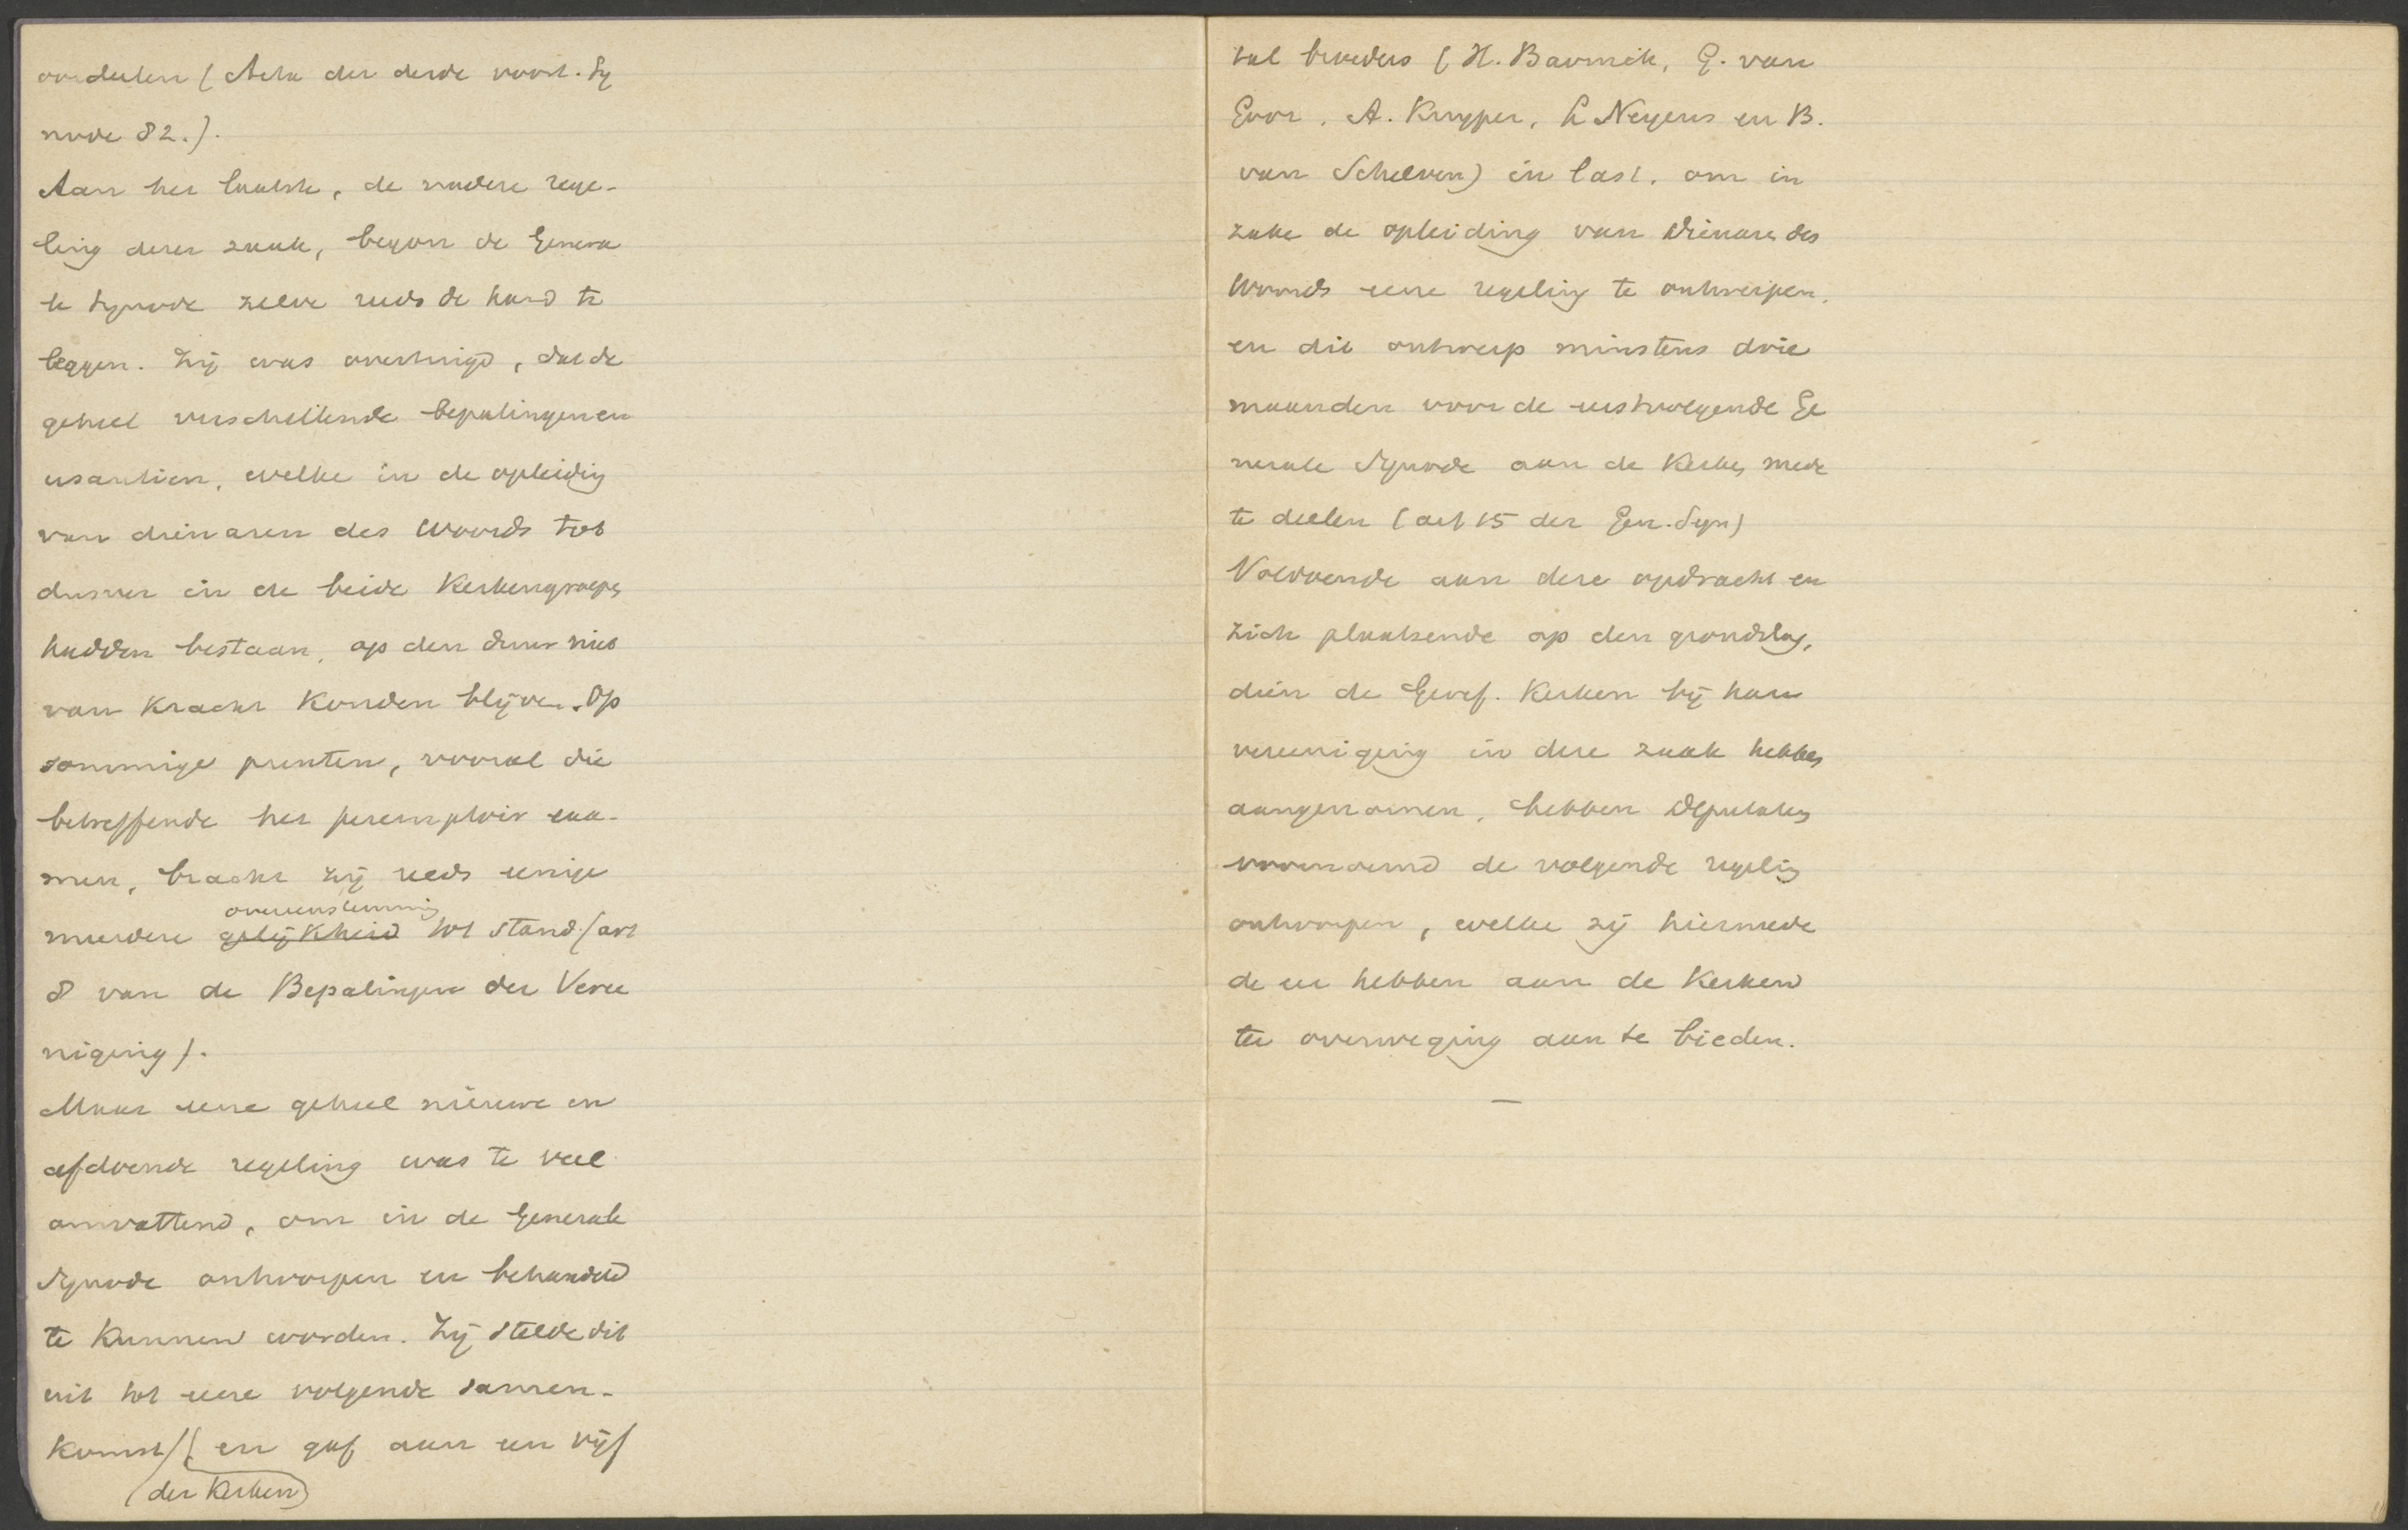 oordeelen (Acta der derde voorl. Sy
node 82.).
Aan het laatste, de nadere rege-
ling dezer zaak, begon de Genera
le Synode zelve reeds de hand te
leggen. Zij was overtuigd, dat de
geheel verschillende bepalingen en
usantien, welke in de opleiding
van dienaren des Woords tot
dusver in de beide Kerkengroepen
hadden bestaan, op den duur niet
van Kracht Konden blijven. Op
sommige punten, vooral die
betreffende het peremptoir exa-
men, bracht zij reeds eenige
overeenstemming
meerdere gelijkheid tot stand (art
8 van de Bepalingen der Veree
niging).
Maar eene geheel nieuwe en
afdoende regeling was te veel
omvattend, om in de Generale
Synode ontworpen en behandeld
te Kunnen worden. Zij stelde dit
uit tot eene volgende samen-
Komst/ (en gaf aan een vijf
(der Kerken)
tal broeders (H. Bavinck, G. van
Goor, A. Kuyper, L Neyens en B.
van Schelven) in last, om in
zake de opleiding van Dienaren des
Woords eene regeling te ontwerpen,
en dit ontwerp minstens drie
maanden voor de eerstvolgende Ge
nerale Synode aan de Kerken mede
te deelen (art 15 der Gen. Syn)
Voldoende aan deze opdracht en
zich plaatsende op den grondslag,
dien de Geref. Kerken bij hare
vereeniging in deze zaak hebben
aangenomen, hebben Deputaten
voornoemd de volgende regeling
ontworpen, welke zij hiermede
de eer hebben aan de Kerken
ter overweging aan te bieden.
—